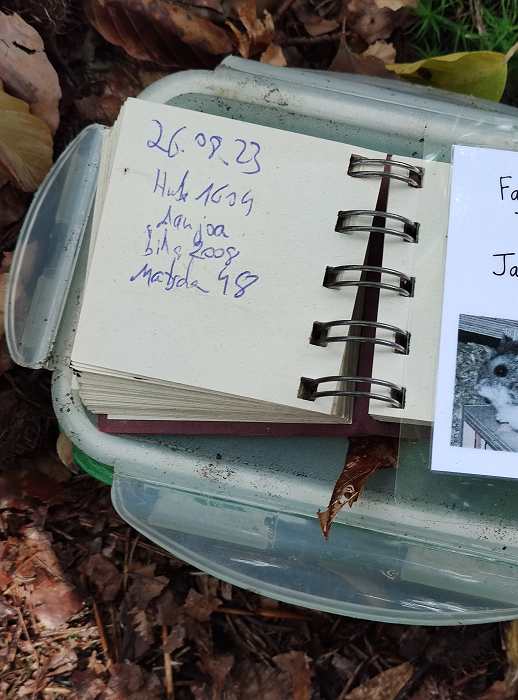 26.08.23
Hute 1609
danjoa
bina 2008
Matjda 48
Fa
Ja